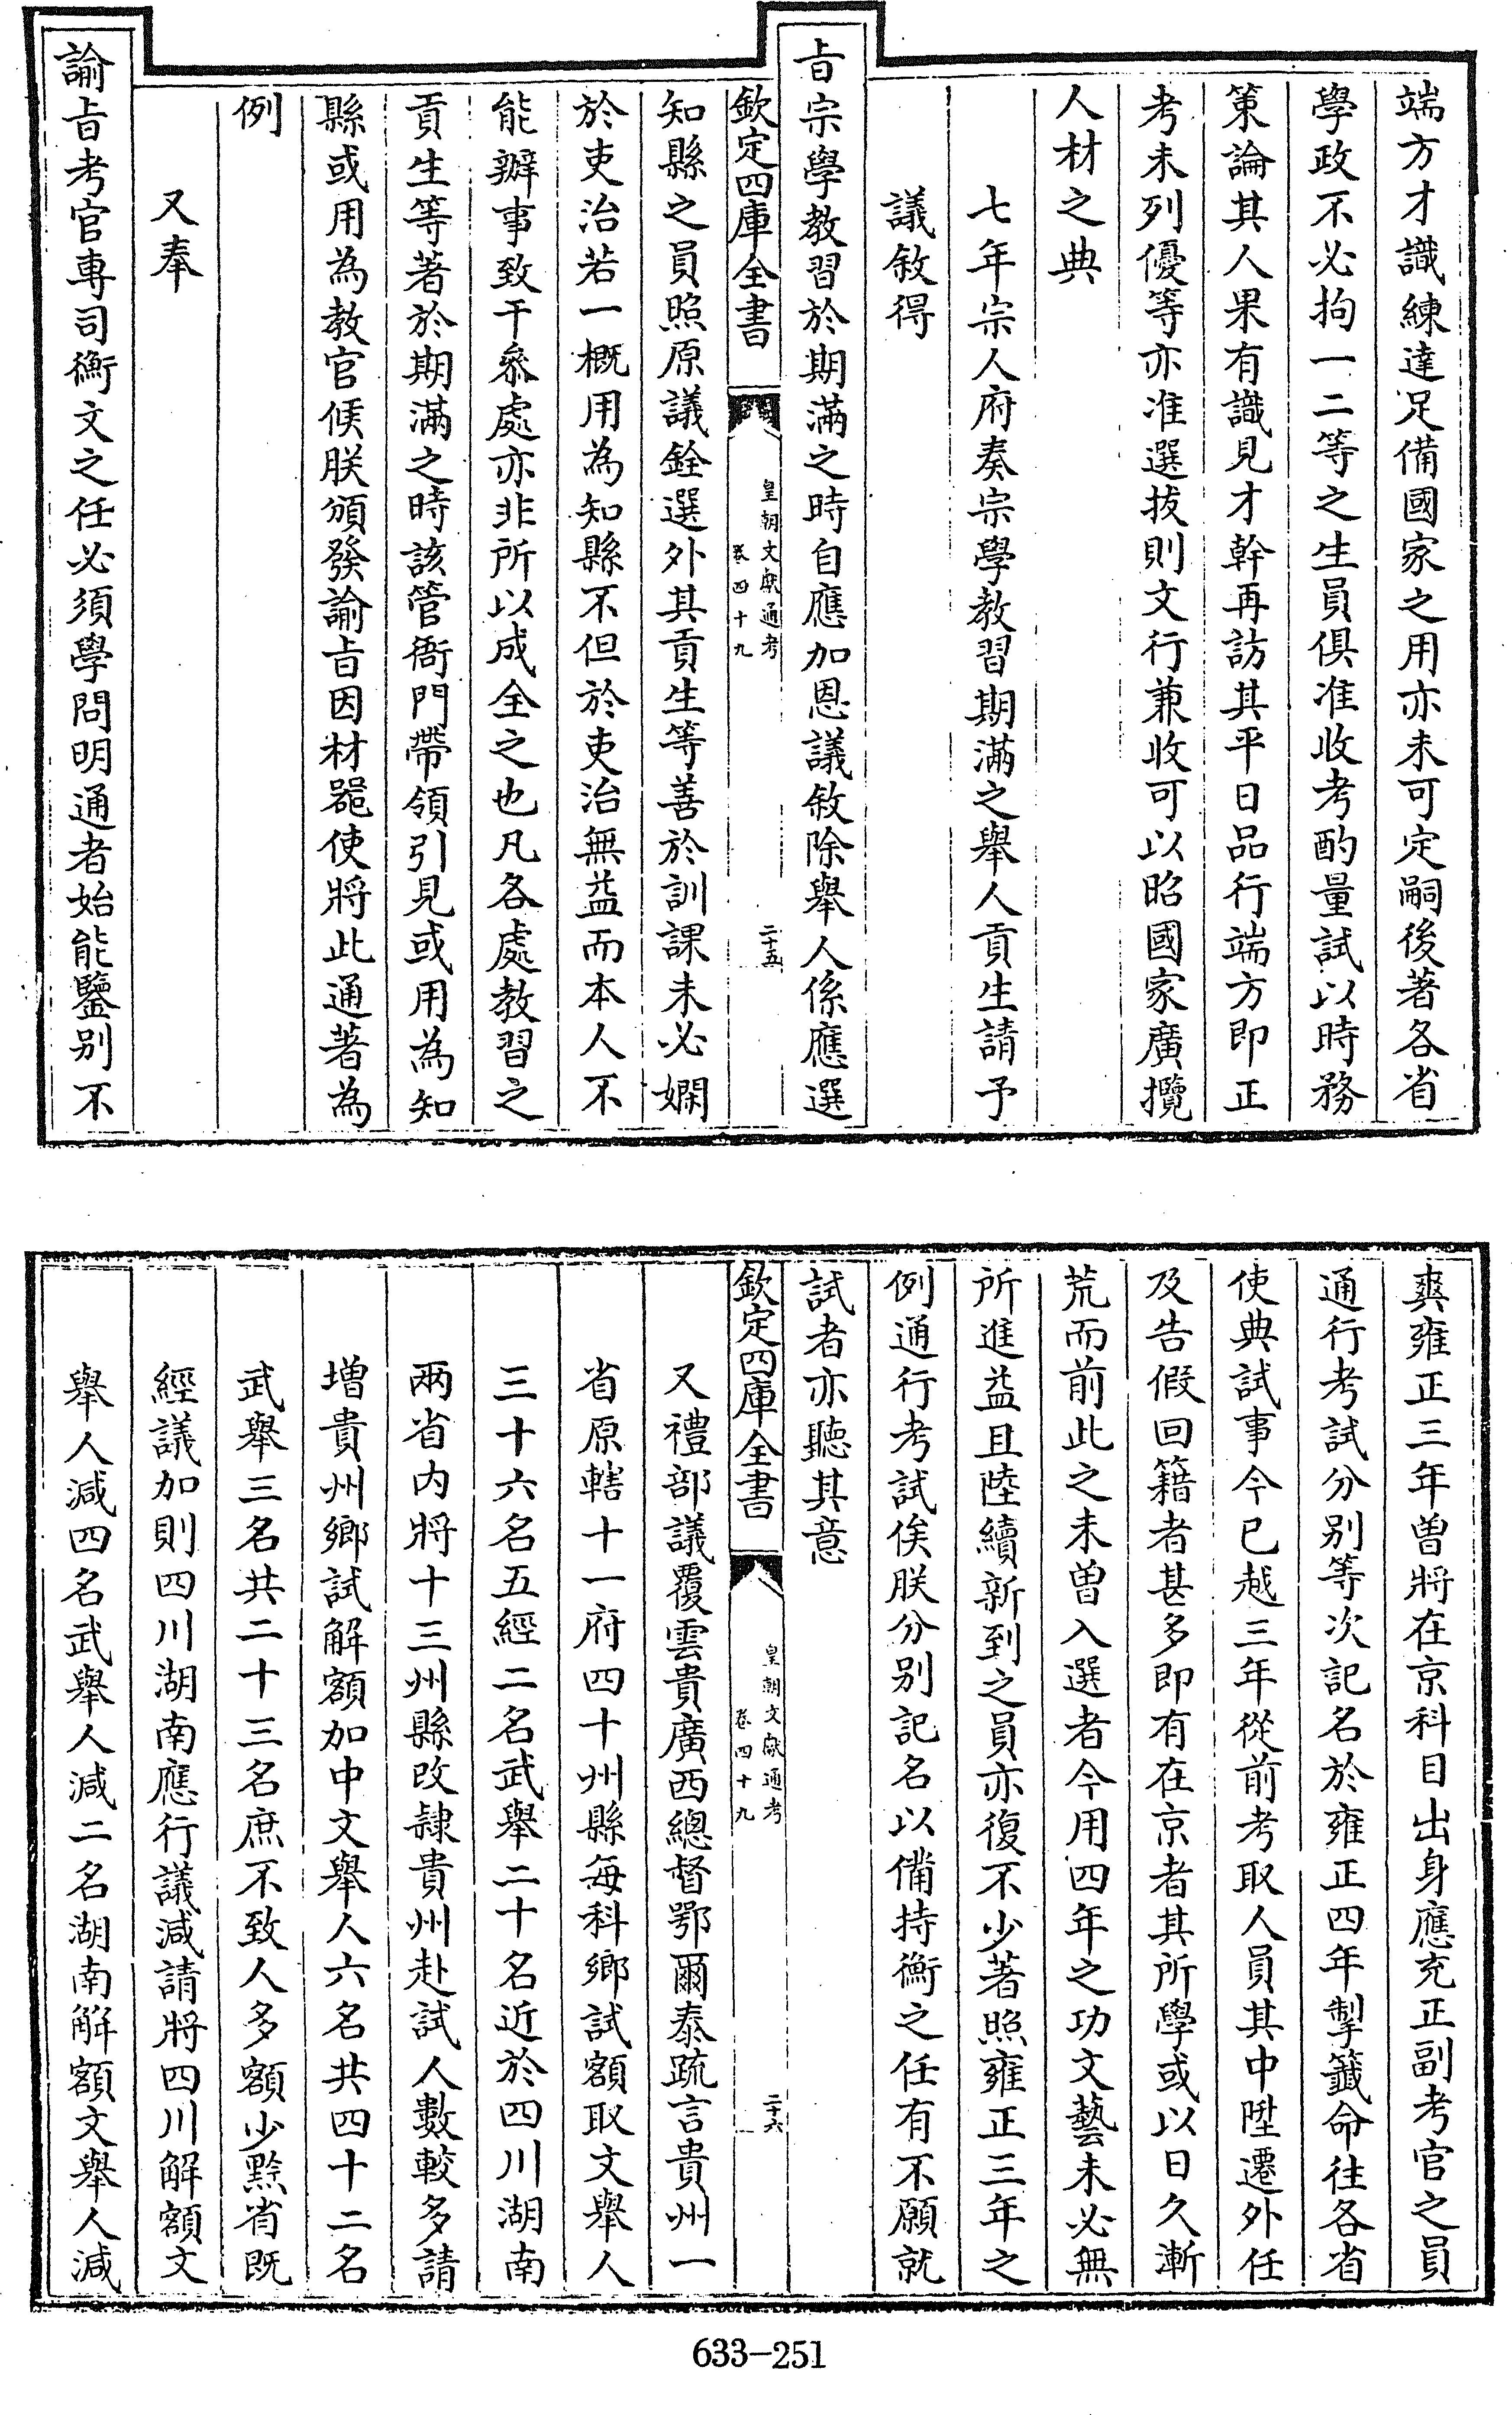 端方才識練達足備國家之用亦未可定嗣後著各省
學政不必拘一二等之生員俱准收考酌量試以時務
策論其人果有識見才幹再訪其平日品行端方即正
考未列優等亦准選拔則文行兼收可以昭國家廣攬
人材之典
七年宗人府奏宗學教習期滿之舉人貢生請予
議敘得
旨宗學教習於期滿之時自應加恩議敘除舉人係應選
欽定四庫全書
皇朝文獻通考
卷四十九
二十五
知縣之員照原議銓選外其貢生等善於訓課未必嫻
於吏治若一概用為知縣不但於吏治無益而本人不
能辦事致干參處亦非所以成全之也凡各處教習之
貢生等著於期滿之時該管衙門帶領引見或用為知
縣或用為教官候朕頒發諭旨因材器使將此通著為
例
又奉
諭旨考官專司衡文之任必須學問明通者始能鑒別不
爽雍正三年曾將在京科目出身應充正副考官之員
通行考試分別等次記名於雍正四年掣籤命往各省
使典試事今已越三年從前考取人員其中陞遷外任
及告假回籍者甚多即有在京者其所學或以日久漸
荒而前此之未曾入選者今用四年之功文藝未必無
所進益且陸續新到之員亦復不少著照雍正三年之
例通行考試俟朕分別記名以備持衡之任有不願就
試者亦聽其意
欽定四庫全書
皇朝文獻通考
卷四十九
二十六
又禮部議覆雲貴廣西總督鄂爾泰疏言貴州一
省原轄十一府四十州縣每科鄉試額取文舉人
三十六名五經二名武舉二十名近於四川湖南
兩省内將十三州縣改隸貴州赴試人數較多請
增貴州鄉試解額加中文舉人六名共四十二名
武舉三名共二十三名庶不致人多額少黔省既
經議加則四川湖南應行議減請將四川解額文
舉人減四名武舉人減二名湖南解額文舉人減
633-251